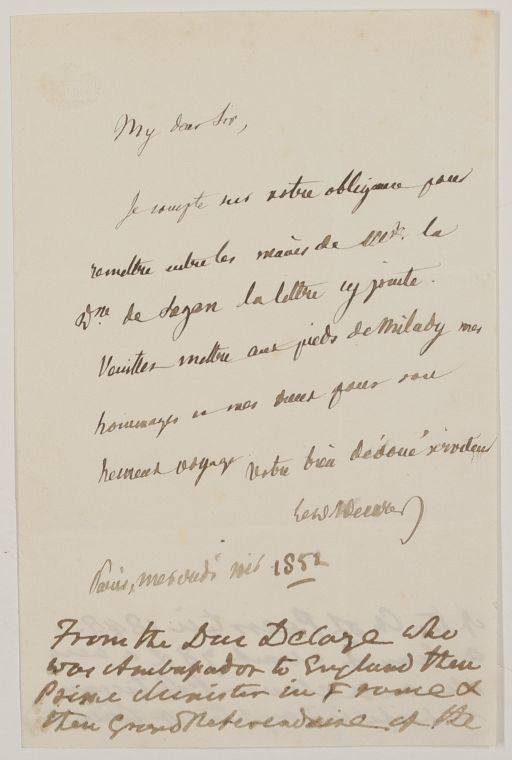 My dear Sir,
Je compte sur votre obligeance pour
remettre entre les mains de Mde. la
Dsse de Sagan la lettre cy jointe.
Veuillez mettre aux pieds de Milady mes
hommages et mes vœux pour son
heureux voyage votre bien dévoué serviteur
Paris, mercredi soir 1852
From the Duc Decaze who
was Ambassador to England then
Prime Minister in France &
then Grand Referendaire of the